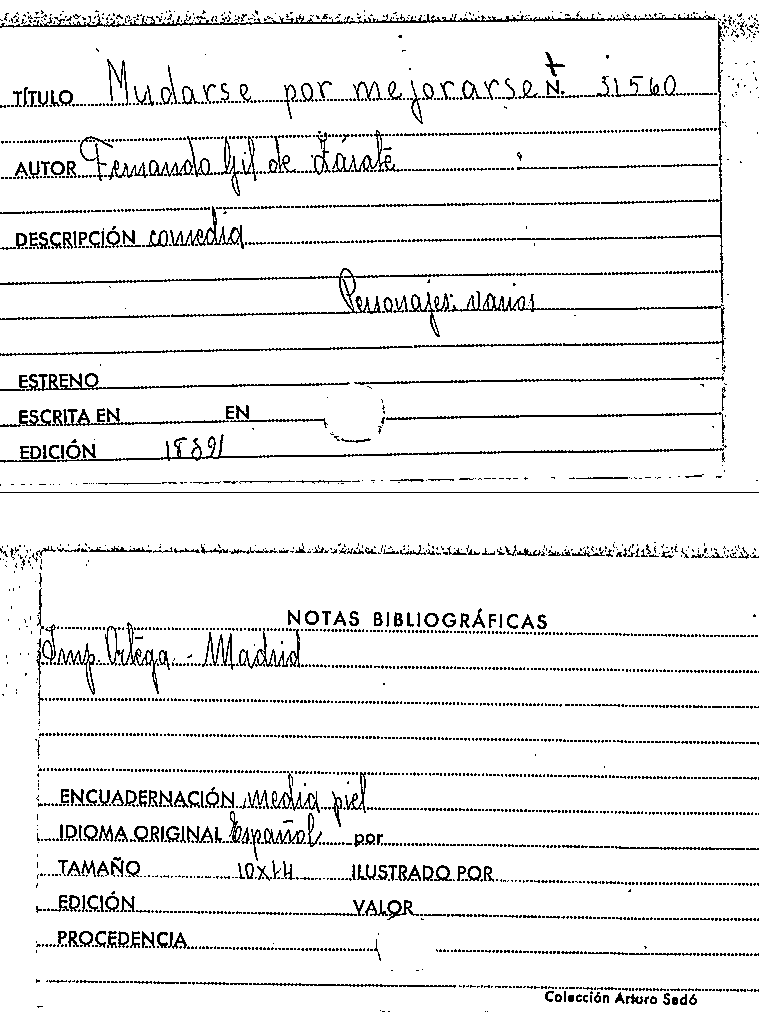 TÍTULO Mudarse por mejorarse N. 51560
AUTOR Fernando Gil de Zárate
DESCRIPCIÓN comedia
Personajes: varios
ESTRENO
ESCRITA EN EN
EDICIÓN
NOTAS BIBLIOGRÁFICAS
Imp. Ortega. - Madrid
ENCUADERNACIÓN media piel
IDIOMA ORIGINAL Español por
TAMAÑO 10x14 ILUSTRADO POR
EDICIÓN VALOR
PROCEDENCIA
Colección Arturo Sedó